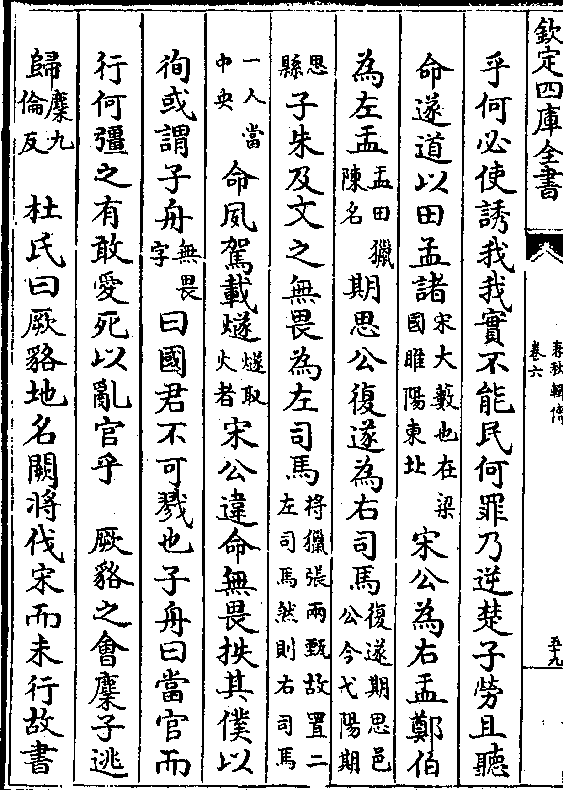 欽定四庫全書
春秋輯傳
卷六
五十九
乎何必使誘我我實不能民何罪乃逆楚子勞且聽
命遂道以田孟諸宋大藪也在梁國睢陽東北宋公為右盂鄭伯
為左盂盂田獵陳名期思公復遂為右司馬復遂期思邑公今弋陽期
思縣子朱及文之無畏為左司馬將獵張兩甄故置二左司馬然則右司馬
一人當中央命夙駕載燧燧取火者宋公違命無畏抶其僕以
徇或謂子舟無畏字曰國君不可戮也子舟曰當官而
行何彊之有敢愛死以亂官乎 厥貉之會麇子逃
歸麇九倫反 杜氏曰厥貉地名闕將伐宋而未行故書